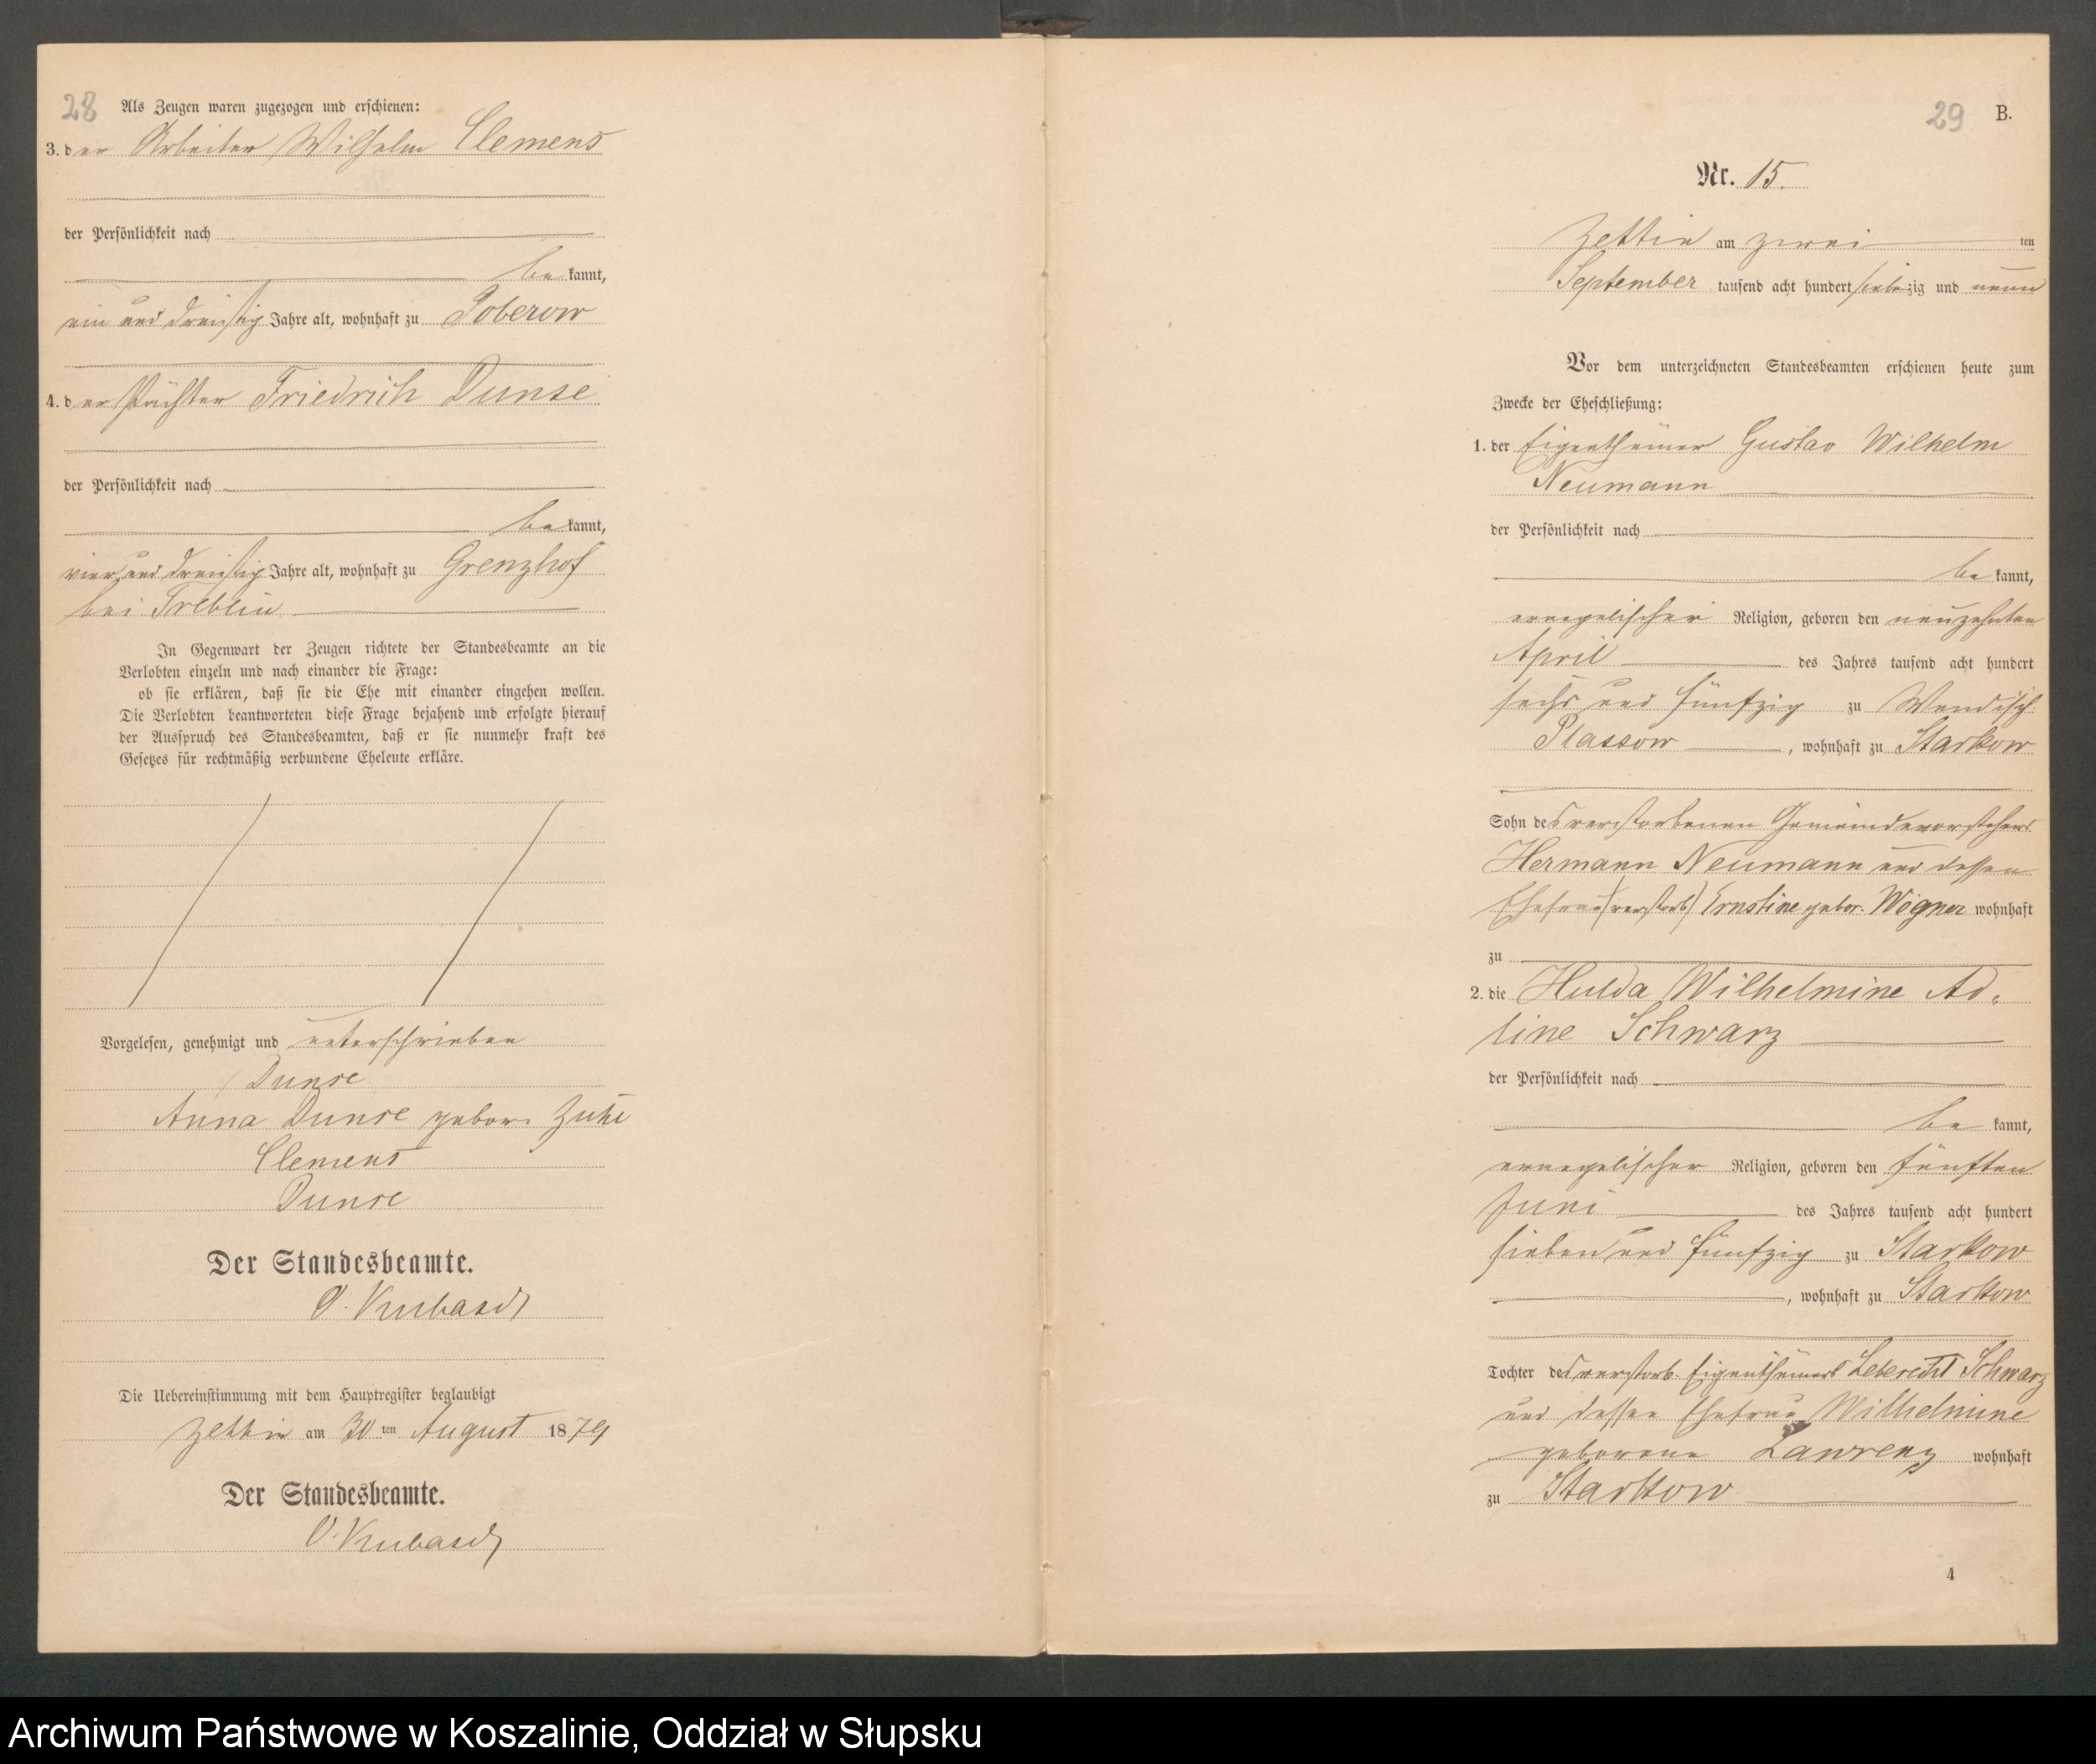 28
Als Zeugen waren zugezogen und erschienen:
3. der Arbeiter Wilhelm Clemens
der Persönlichkeit nach
be kannt,
ein und dreißig Jahre alt, wohnhaft zu Poberow
4. der Pächter Friedrich Dunse
der Persönlichkeit nach
be kannt,
vier und dreißig Jahre alt, wohnhaft zu Grenzhof
bei Treblin
In Gegenwart der Zeugen richtete der Standesbeamte an die
Verlobten einzeln und nach einander die Frage:
ob sie erklären, daß sie die Ehe mit einander eingehen wollen.
Die Verlobten beantworteten diese Frage bejahend und erfolgte hierauf
der Ausspruch des Standesbeamten, daß er sie nunmehr kraft des
Gesetzes für rechtmäßig verbundene Eheleute erkläre.
Vorgelesen, genehmigt und unterschrieben
Dunse
Anna Dunse gebor.
Clemens
Dunse
Der Standesbeamte.
Die Uebereinstimmung mit dem Hauptregister beglaubigt
Zettin am 30 ten August 1879
Der Standesbeamte.
29 B.
Nr. 15.
Zettin am zwei ten
September tausend acht hundert siebenzig und neun
Vor dem unterzeichneten Standesbeamten erschienen heute zum
Zwecke der Eheschließung:
1. der Eigenthümer Gustav Wilhelm
Neumann
der Persönlichkeit nach
be kannt,
evangelischer Religion, geboren den neunzehnten
April des Jahres tausend acht hundert
sechs und fünfzig zu Wendisch
Plassow, wohnhaft zu Starkow
Sohn des verstorbenen Gemeindevorstehers
Hermann Neumann und dessen
Ehefrau (verstorb.) Ernstine gebor. Wegner wohnhaft
zu
2. die Hulda Wilhelmine Ad-
line Schwarz
der Persönlichkeit nach
be kannt,
evangelischer Religion, geboren den fünften
Juni des Jahres tausend acht hundert
sieben und fünfzig zu Starkow
, wohnhaft zu Starkow
Tochter des verstorb. Eigenthümers Leberecht Schwarz
und dessen Ehefrau Wilhelmine
geborene Lawrenz wohnhaft
zu Starkow
4
Archiwum Państwowe w Koszalinie, Oddział w Słupsku